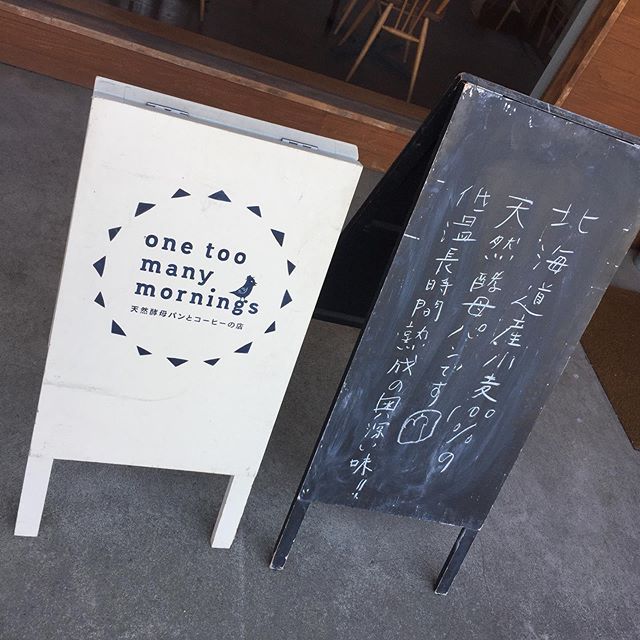 one too
many
mornings
天然酵母パンとコーヒーの店
北海道産小麦100%の
天然酵母パンです
低温長時間熟成の奥深い味!!